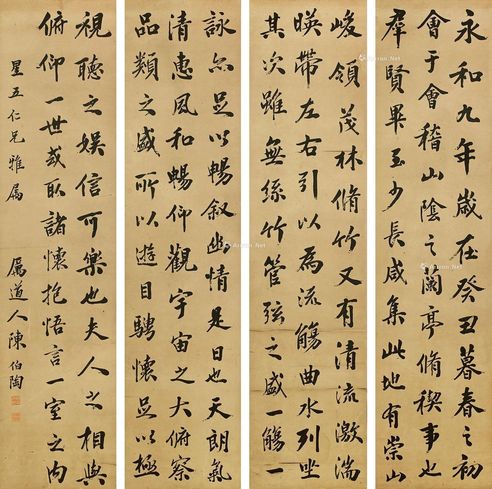 永和九年歲在癸丑暮春之初
會于會稽山陰之蘭亭脩稧事也
羣賢畢至少長咸集此地有崇山
峻領茂林脩竹又有清流激湍
暎帶左右引以為流觴曲水列坐
其次雖無絲竹管弦之盛一觴一
詠亦足以暢叙幽情是日也天朗氣
清惠風和暢仰觀宇宙之大俯察
品類之盛所以遊目騁懷足以極
視聽之娛信可樂也夫人之相與
俯仰一世或取諸懷抱悟言一室之內
星五仁兄雅屬 道人陳伯陶